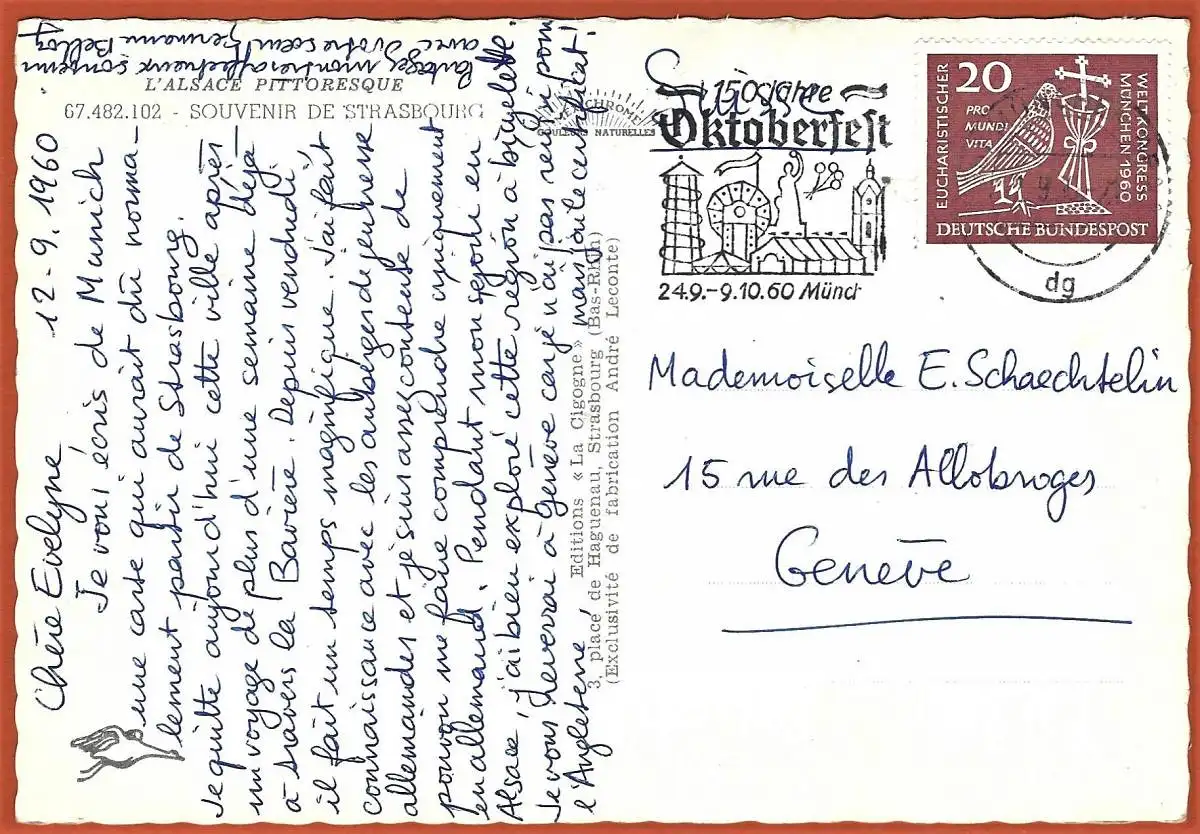 L'ALSACE PITTORESQUE
67.482.102 - SOUVENIR DE STRASBOURG
12-9.1960
Chère Evelyne
Je vous écris de Munich
une carte qui aurait dû norma-
lement partir de Strasbourg.
Je quitte aujourd'hui cette ville après
un voyage de plus d'une semaine déjà
à travers la Bavière. Depuis vendredi
il fait un temps magnifique. J'ai fait
connaissance avec les auberges de jeunesse
allemandes et je suis assez contente de
pouvoir me faire comprendre uniquement
en allemand. Pendant mon séjour en
Alsace, j'ai bien exploré cette région à bicyclette.
Je vous reverrai à Genève car je n'ai pas reçu pour
l'Angleterre mais certificat!
Partagez mon très affectueux souvenir
avec votre soeur Germaine
COULEURS NATURELLES
Editions «La Cigogne»
3, place de Haguenau, Strasbourg (Bas-Rhin)
(Exclusivité de fabrication André Leconte)
150 Jahre
Oktoberfest
24.9.-9.10.60 Münch
dg
20
PRO
MUNDI
VITA
EUCHARISTISCHER
WELTKONGRESS
MÜNCHEN 1960
DEUTSCHE BUNDESPOST
Mademoiselle E. Schaechtelin
15 rue des Allobroges
Genève